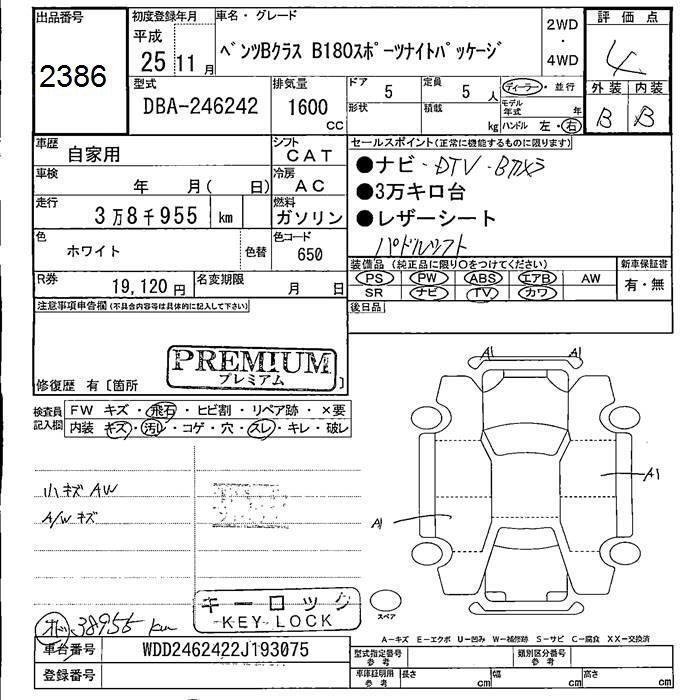 出品番号
2386
初度登録年月
平成
25 11月
車名・グレード
ベンツBクラス B180スポーツナイトパッケージ
2WD
・
4WD
評価点
4
外装 内装
B B
型式
DBA-246242
排気量
1600
CC
ドア
5
定員
5 人
形状
積載
kg
ディーラー・並行
モデル年式 年
ハンドル 左・右
車歴
自家用
シフト
CAT
車検
年 月( 日)
冷房
AC
走行
3万8千955 km
燃料
ガソリン
色
ホワイト
色替
色コード
650
R券
19,120円
名変期限
月 日
セールスポイント(正常に機能するものに限ります)
●ナビ・DTV・Bカメラ
●3万キロ台
●レザーシート
パドルシフト
装備品(純正品に限り○をつけてください)
PS PW ABS エアB AW
SR ナビ TV カワ
新車保証書
有・無
後日品
注意事項申告欄(不具合内容等は具体的に記入して下さい)
PREMIUM
プレミアム
修復歴 有〔箇所 〕
検査員
記入欄
FW キズ・飛石・ヒビ割・リペア跡・×要
内装 キズ・汚レ・コゲ・穴・スレ・キレ・破レ
小キズ AW
A/W キズ
A1 A1
A1
A1
スペア
キーロック
KEY LOCK
38955 km
A-キズ E-エクボ U-凹み W-補修跡 S-サビ C-腐食 XX-交換済
車台番号
WDD2462422J193075
登録番号
型式指定番号
参考
類別区分番号
参考
車庫証明用
参考
長さ cm 幅 cm 高さ cm